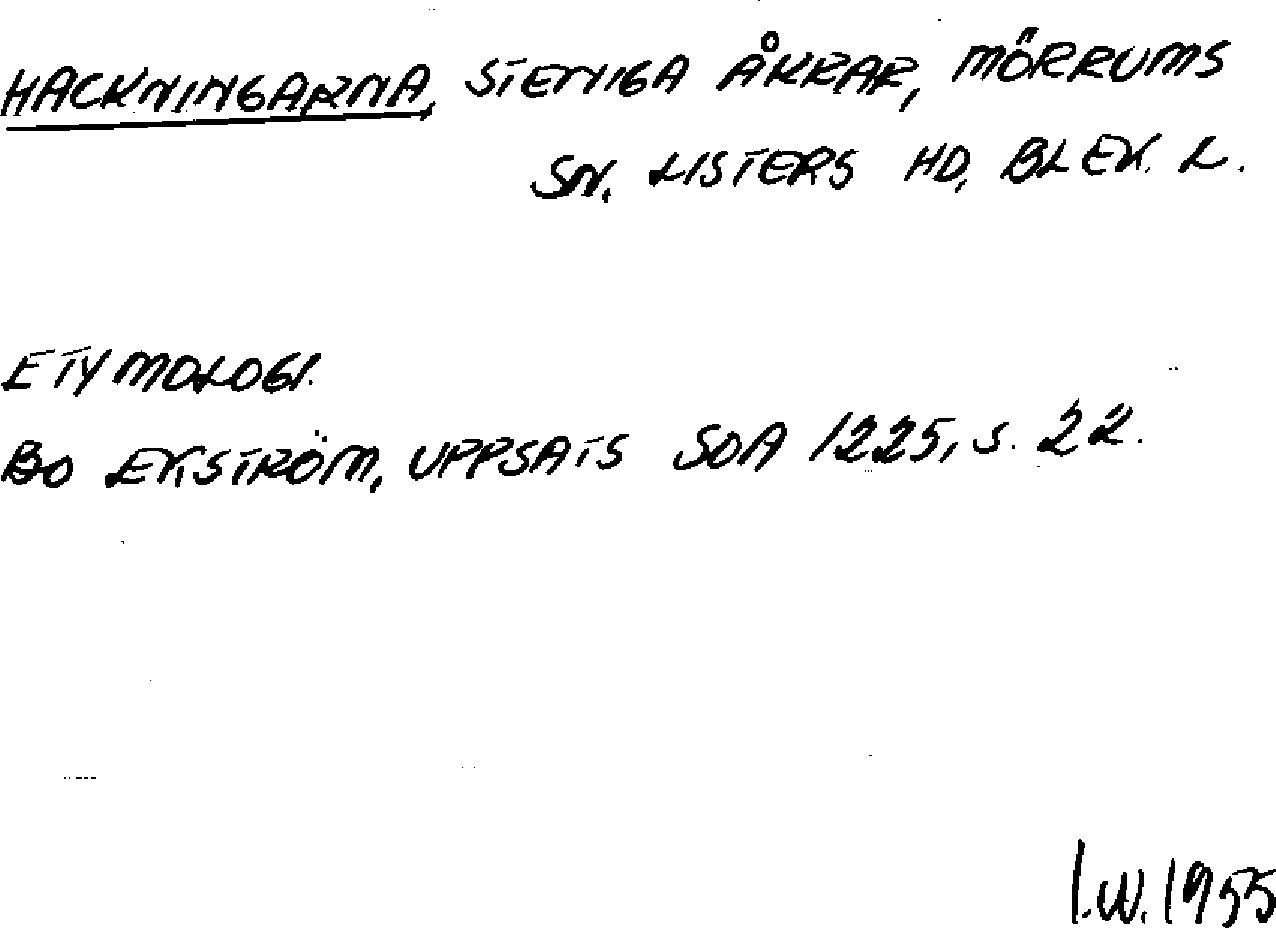 HACKNINGARNA, STENIGA ÅKRAR, MÖRRUMS
SN. LISTERS HD, BLEK. L.
ETYMOLOGI.
BO EKSTRÖM, UPPSATS SOA 1225, S. 22.
I.W. 1955